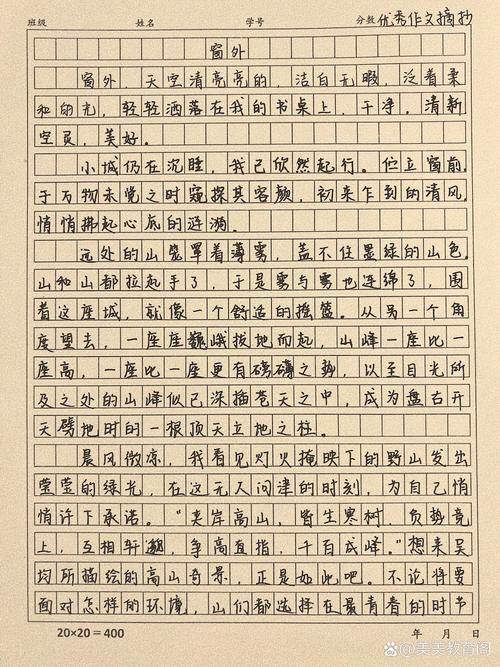 班级 姓名 学号 分数 优秀作文摘抄
窗外
窗外，天空清亮亮的，洁白无暇，泛着柔
和的光，轻轻洒落在我的书桌上，干净，清新
空灵，美好。
小城仍在沉睡，我已欣然起行。伫立窗前，
于万物未觉之时窥探其容颜，初来乍到的清风
悄悄拂起心底的涟漪。
远处的山笼罩着薄雾，盖不住墨绿的山色。
山和山都拉起手了，于是雾与雾也连绵了，围
着这座城，就像一个舒适的摇篮。从另一个角
度望去，一座座巍峨拔地而起，山峰一座比一
座高，一座比一座更有磅礴之势，以至目光所
及之处的山峰似已深插苍天之中，成为盘古开
天劈地时的一根顶天立地之柱。
晨风微凉，我看见灯火掩映下的野山发出
莹莹的绿光，在这无人问津的时刻，为自己悄
悄许下承诺。“夹岸高山，皆生寒树，负势竞
上，互相轩邈，争高直指，千百成峰。”想来吴
均所描绘的高山奇景，正是如此吧。不论将要
面对怎样的环境，山们都选择在最青春的时节
20×20=400 年 月 日
美美教育阁